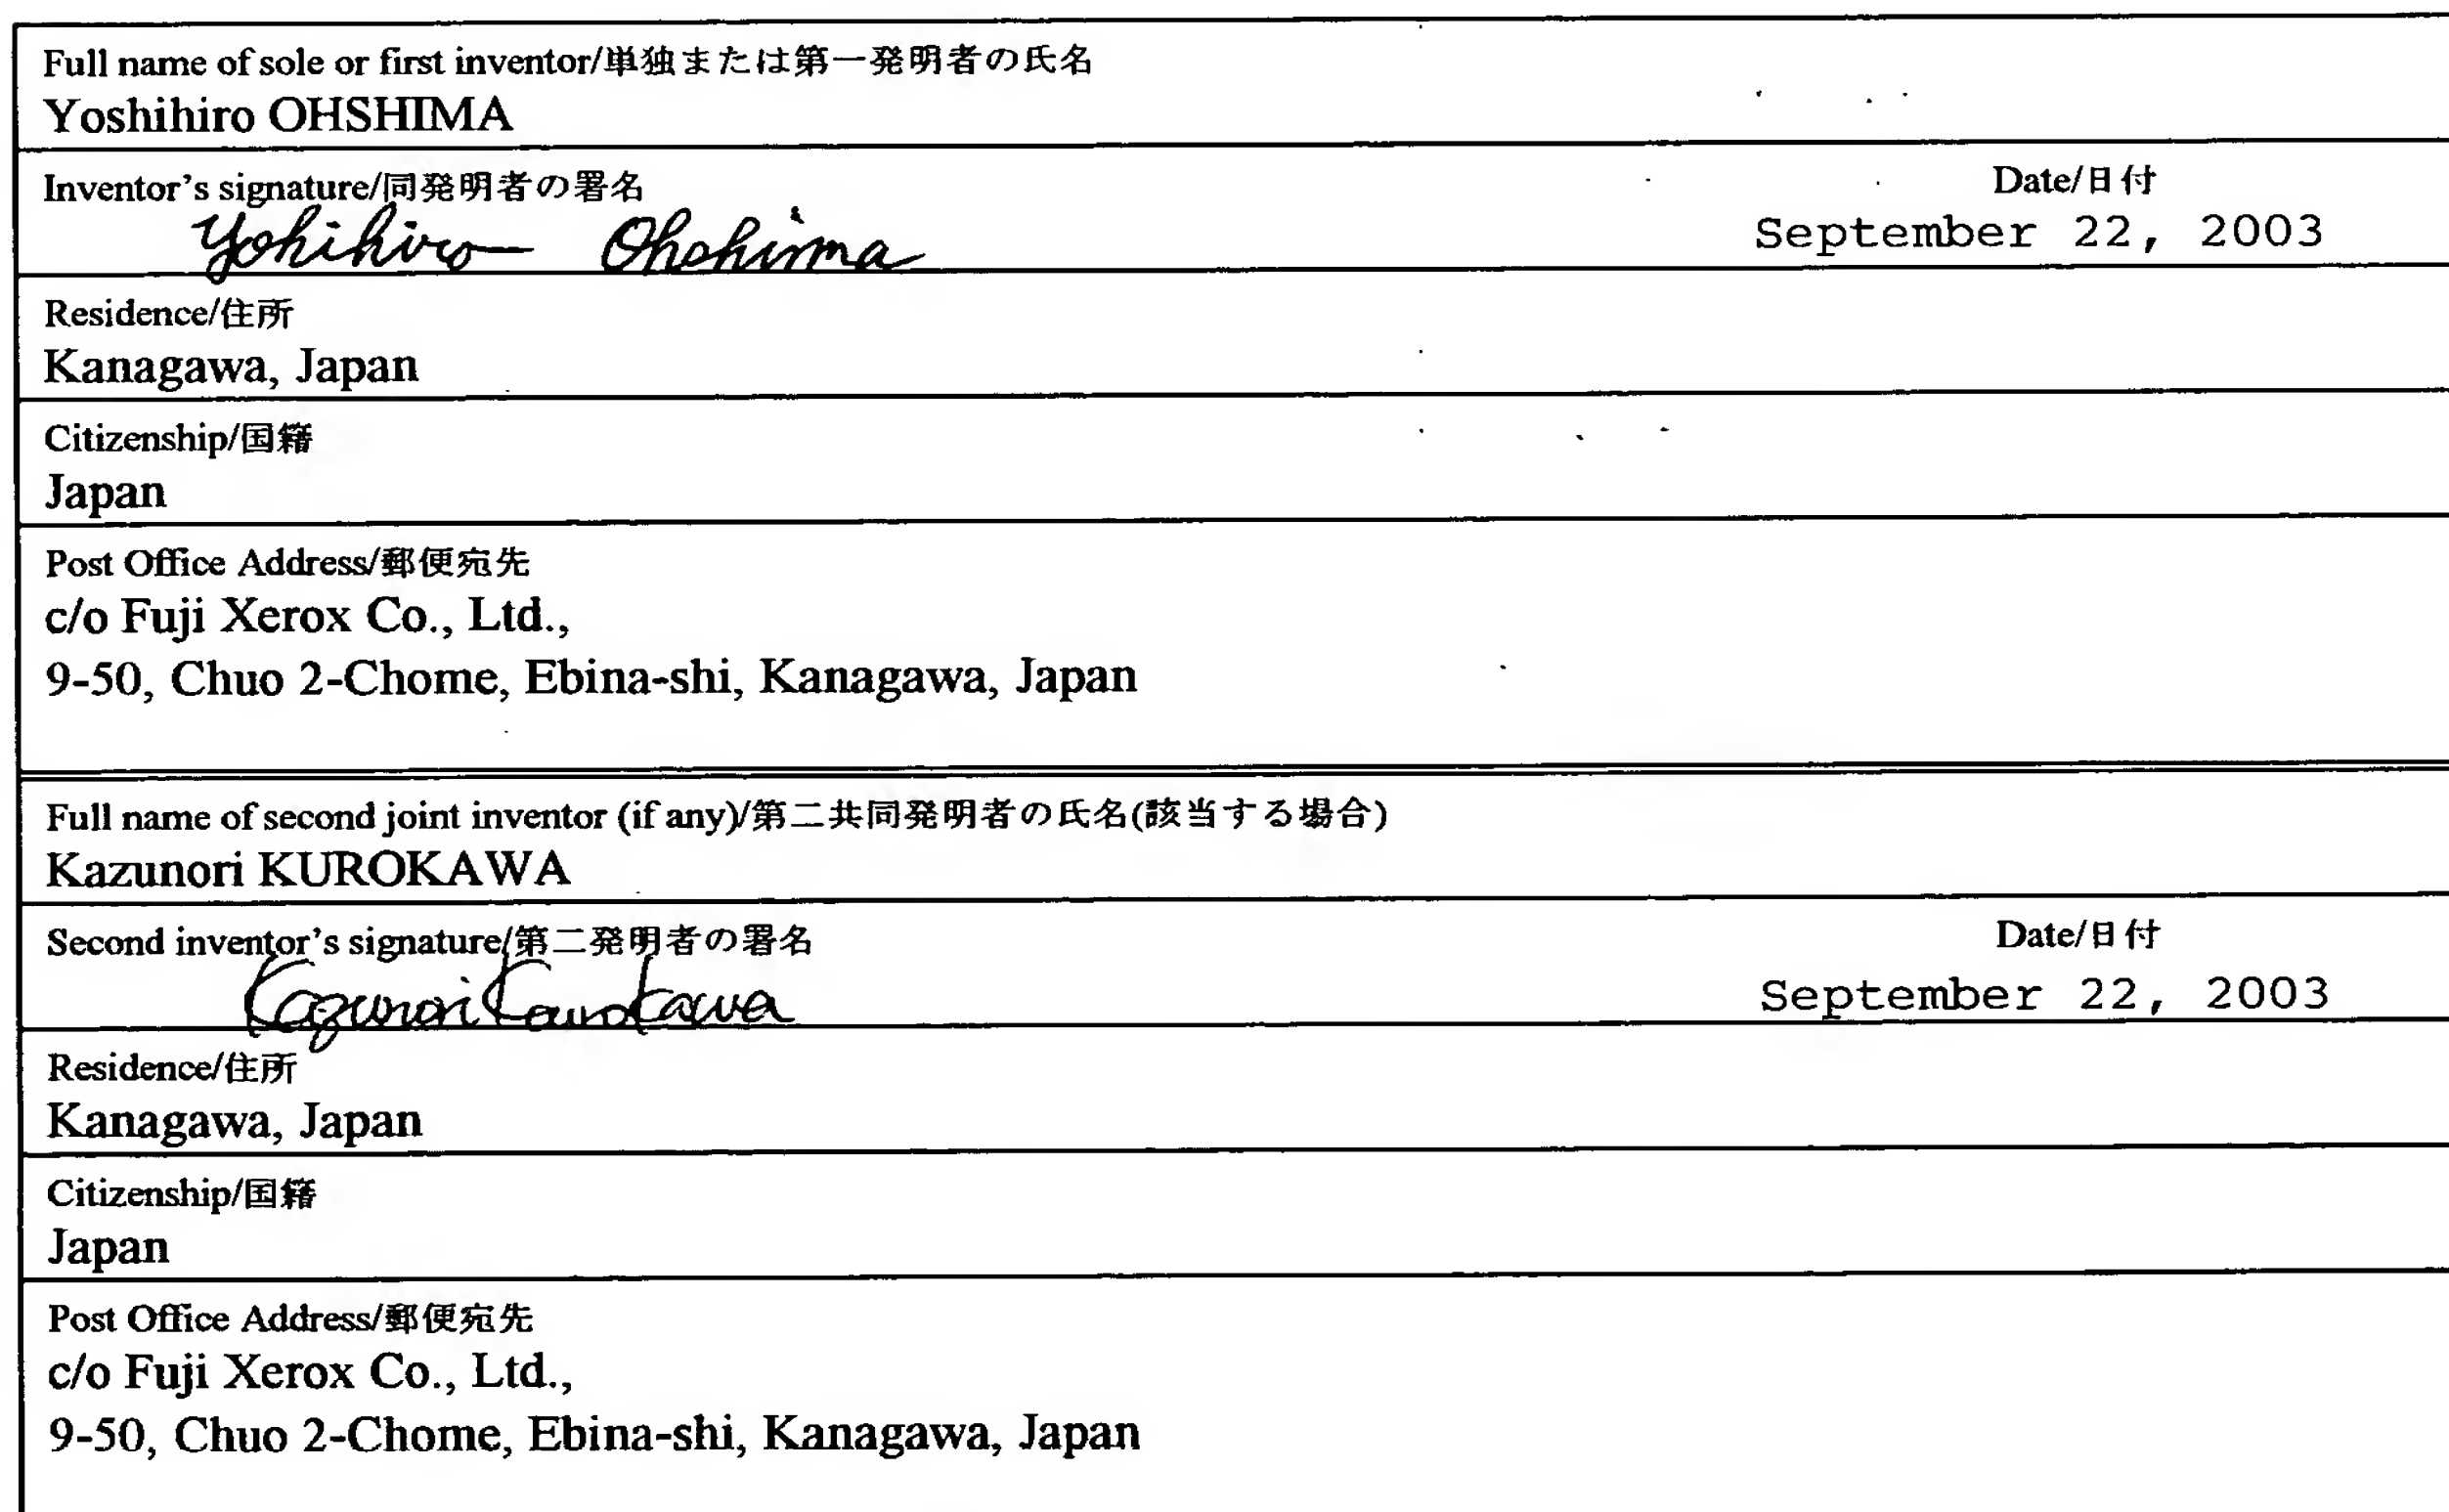 Full name of sole or first inventor/単独または第一発明者の氏名
Yoshihiro OHSHIMA
Inventor's signature/同発明者の署名
Date/日付
Yohihiro Ohshima
September 22, 2003
Residence/住所
Kanagawa, Japan
Citizenship/国籍
Japan
Post Office Address/郵便宛先
c/o Fuji Xerox Co., Ltd.,
9-50, Chuo 2-Chome, Ebina-shi, Kanagawa, Japan
Full name of second joint inventor (if any)/第二共同発明者の氏名(該当する場合)
Kazunori KUROKAWA
Second inventor's signature/第二発明者の署名
Date/日付
Kazunori Kurokawa
September 22, 2003
Residence/住所
Kanagawa, Japan
Citizenship/国籍
Japan
Post Office Address/郵便宛先
c/o Fuji Xerox Co., Ltd.,
9-50, Chuo 2-Chome, Ebina-shi, Kanagawa, Japan